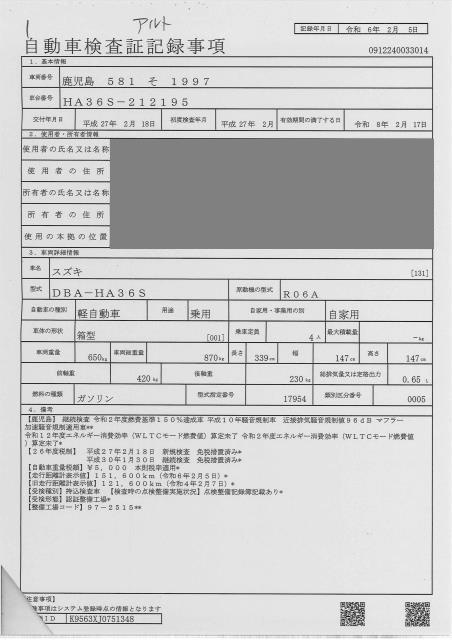 1 アルト
記録年月日 令和 6年 2月 5日
自動車検査証記録事項 0912240033014
1. 基本情報
車両番号 鹿児島 581 そ 1997
車台番号 HA36S-212195
交付年月日 平成 27年 2月 18日 初度検査年月 平成 27年 2月 有効期間の満了する日 令和 8年 2月 17日
2. 使用者・所有者情報
使用者の氏名又は名称
使用者の住所
所有者の氏名又は名称
所有者の住所
使用の本拠の位置
3. 車両詳細情報
車名 スズキ [131]
型式 DBA-HA36S 原動機の型式 R06A
自動車の種別 軽自動車 用途 乗用 自家用・事業用の別 自家用
車体の形状 箱型 [001] 乗車定員 4人 最大積載量 -kg
車両重量 650kg 車両総重量 870kg 長さ 339cm 幅 147cm 高さ 147cm
前軸重 420kg 後軸重 230kg 総排気量又は定格出力 0.65L
燃料の種類 ガソリン 型式指定番号 17954 類別区分番号 0005
4. 備考
【鹿児島】 継続検査 令和2年度燃費基準150%達成車 平成10年騒音規制車 近接排気騒音規制値96dB マフラー
加速騒音規制適用車**
令和12年度エネルギー消費効率(WLTCモード燃費値)算定未了 令和2年度エネルギー消費効率(WLTCモード燃費値
)算定未了*
【26年度税制】 平成27年2月18日 新規検査 免税措置済み*
平成30年1月30日 継続検査 免税措置済み*
【自動車重量税額】¥5,000 本則税率適用*
【走行距離計表示値】151,600km(令和6年2月5日)*
【旧走行距離計表示値】121,600km(令和4年2月7日)*
【受検種別】持込検査車 【検査時の点検整備実施状況】点検整備記録簿記載あり*
【受検形態】認証整備工場*
【整備工場コード】97-2515**
注意事項】
事項はシステム登録時点の情報となります
ID K9563XJ0751348